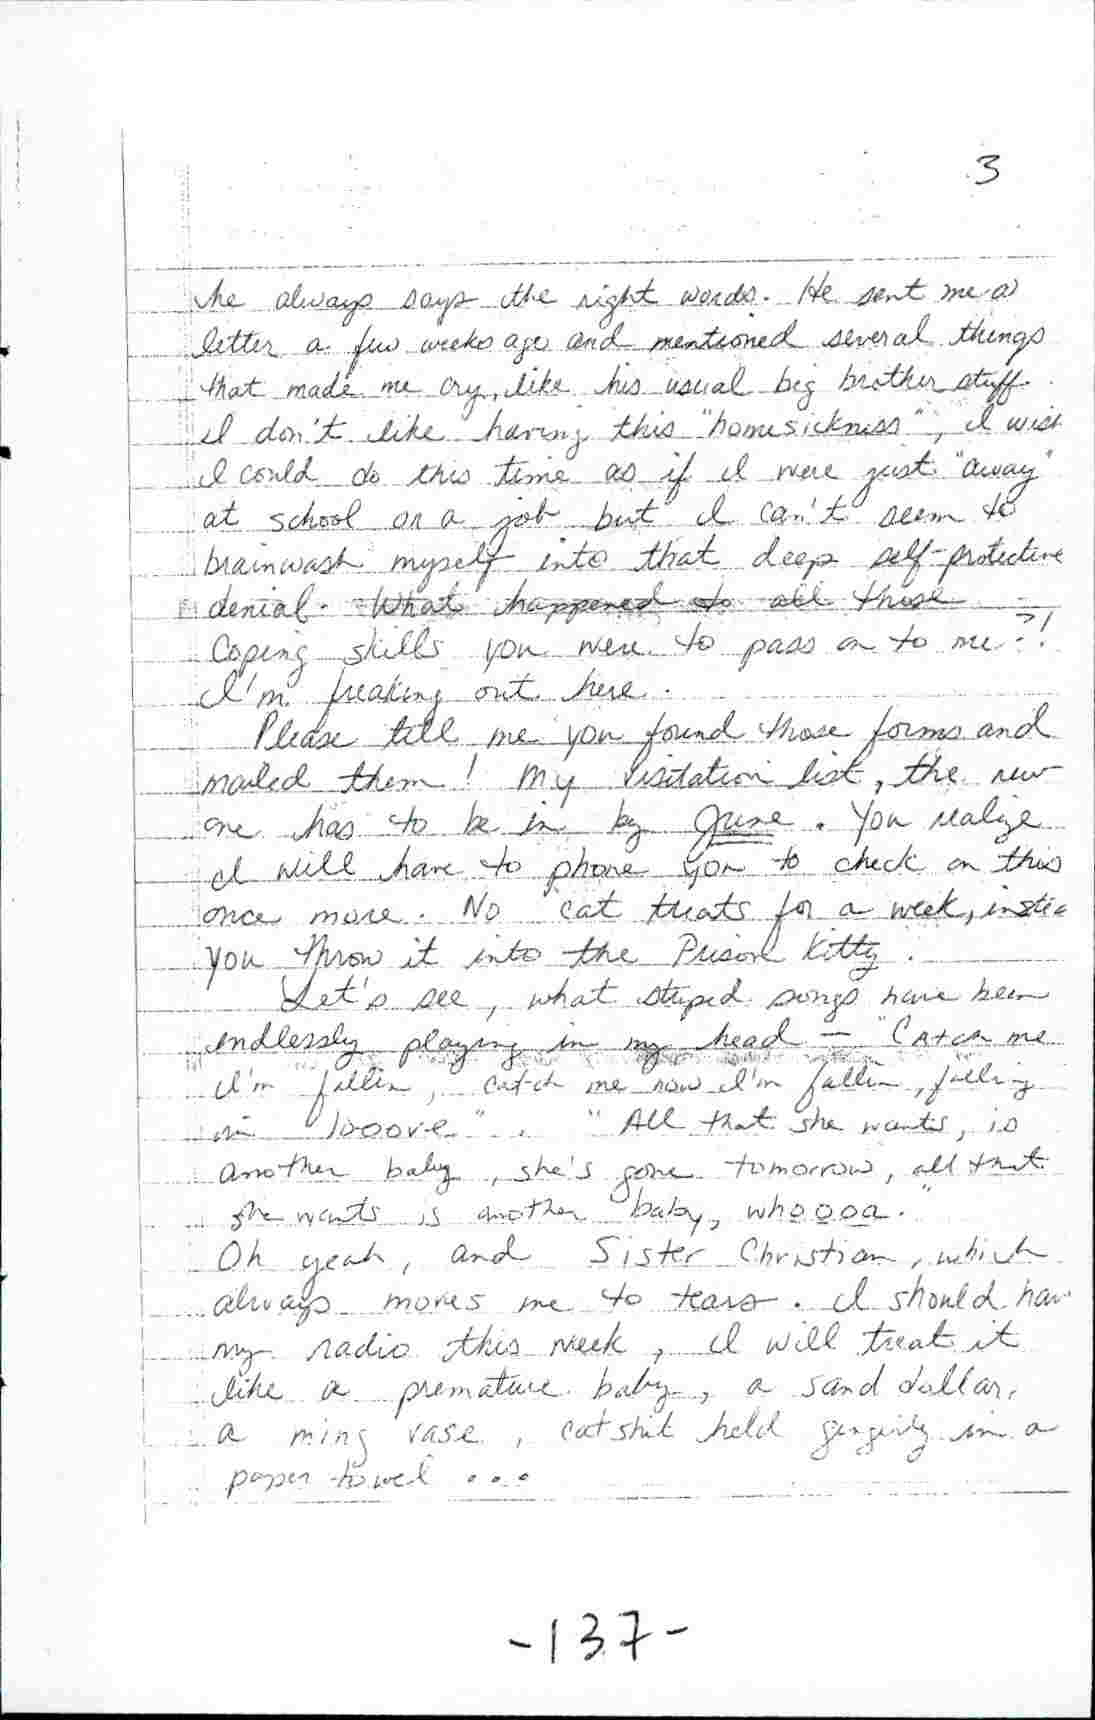 3
he always says the right words. He sent me a
letter a few weeks ago and mentioned several things
that made me cry, like his usual big brother stuff.
I don't like having this "homesickness", I wish
I could do this time as if I were just "away"
at school or a job but I can't seem to
brainwash myself into that deep self-protective
denial. What happened to all those
Coping skills you were to pass on to me?!
I'm freaking out here.
Please tell me you found those forms and
mailed them! My visitation list, the new
one has to be in by June. You realize
I will have to phone you to check on this
once more. No cat treats for a week, instea
you throw it into the Prison Kitty.
Let's see, what stupid songs have been
endlessly playing in my head — "Catch me
I'm fallin, catch me now I'm fallin, falling
in looove". "All that she wants, is
another baby, she's gone tomorrow, all that
she wants is another baby, whoooa."
Oh yeah, and Sister Christian, which
always moves me to tears. I should hav
my radio this week, I will treat it
like a premature baby, a sand dollar,
a ming vase, catshit held gingerly in a
paper towel ...
-137-